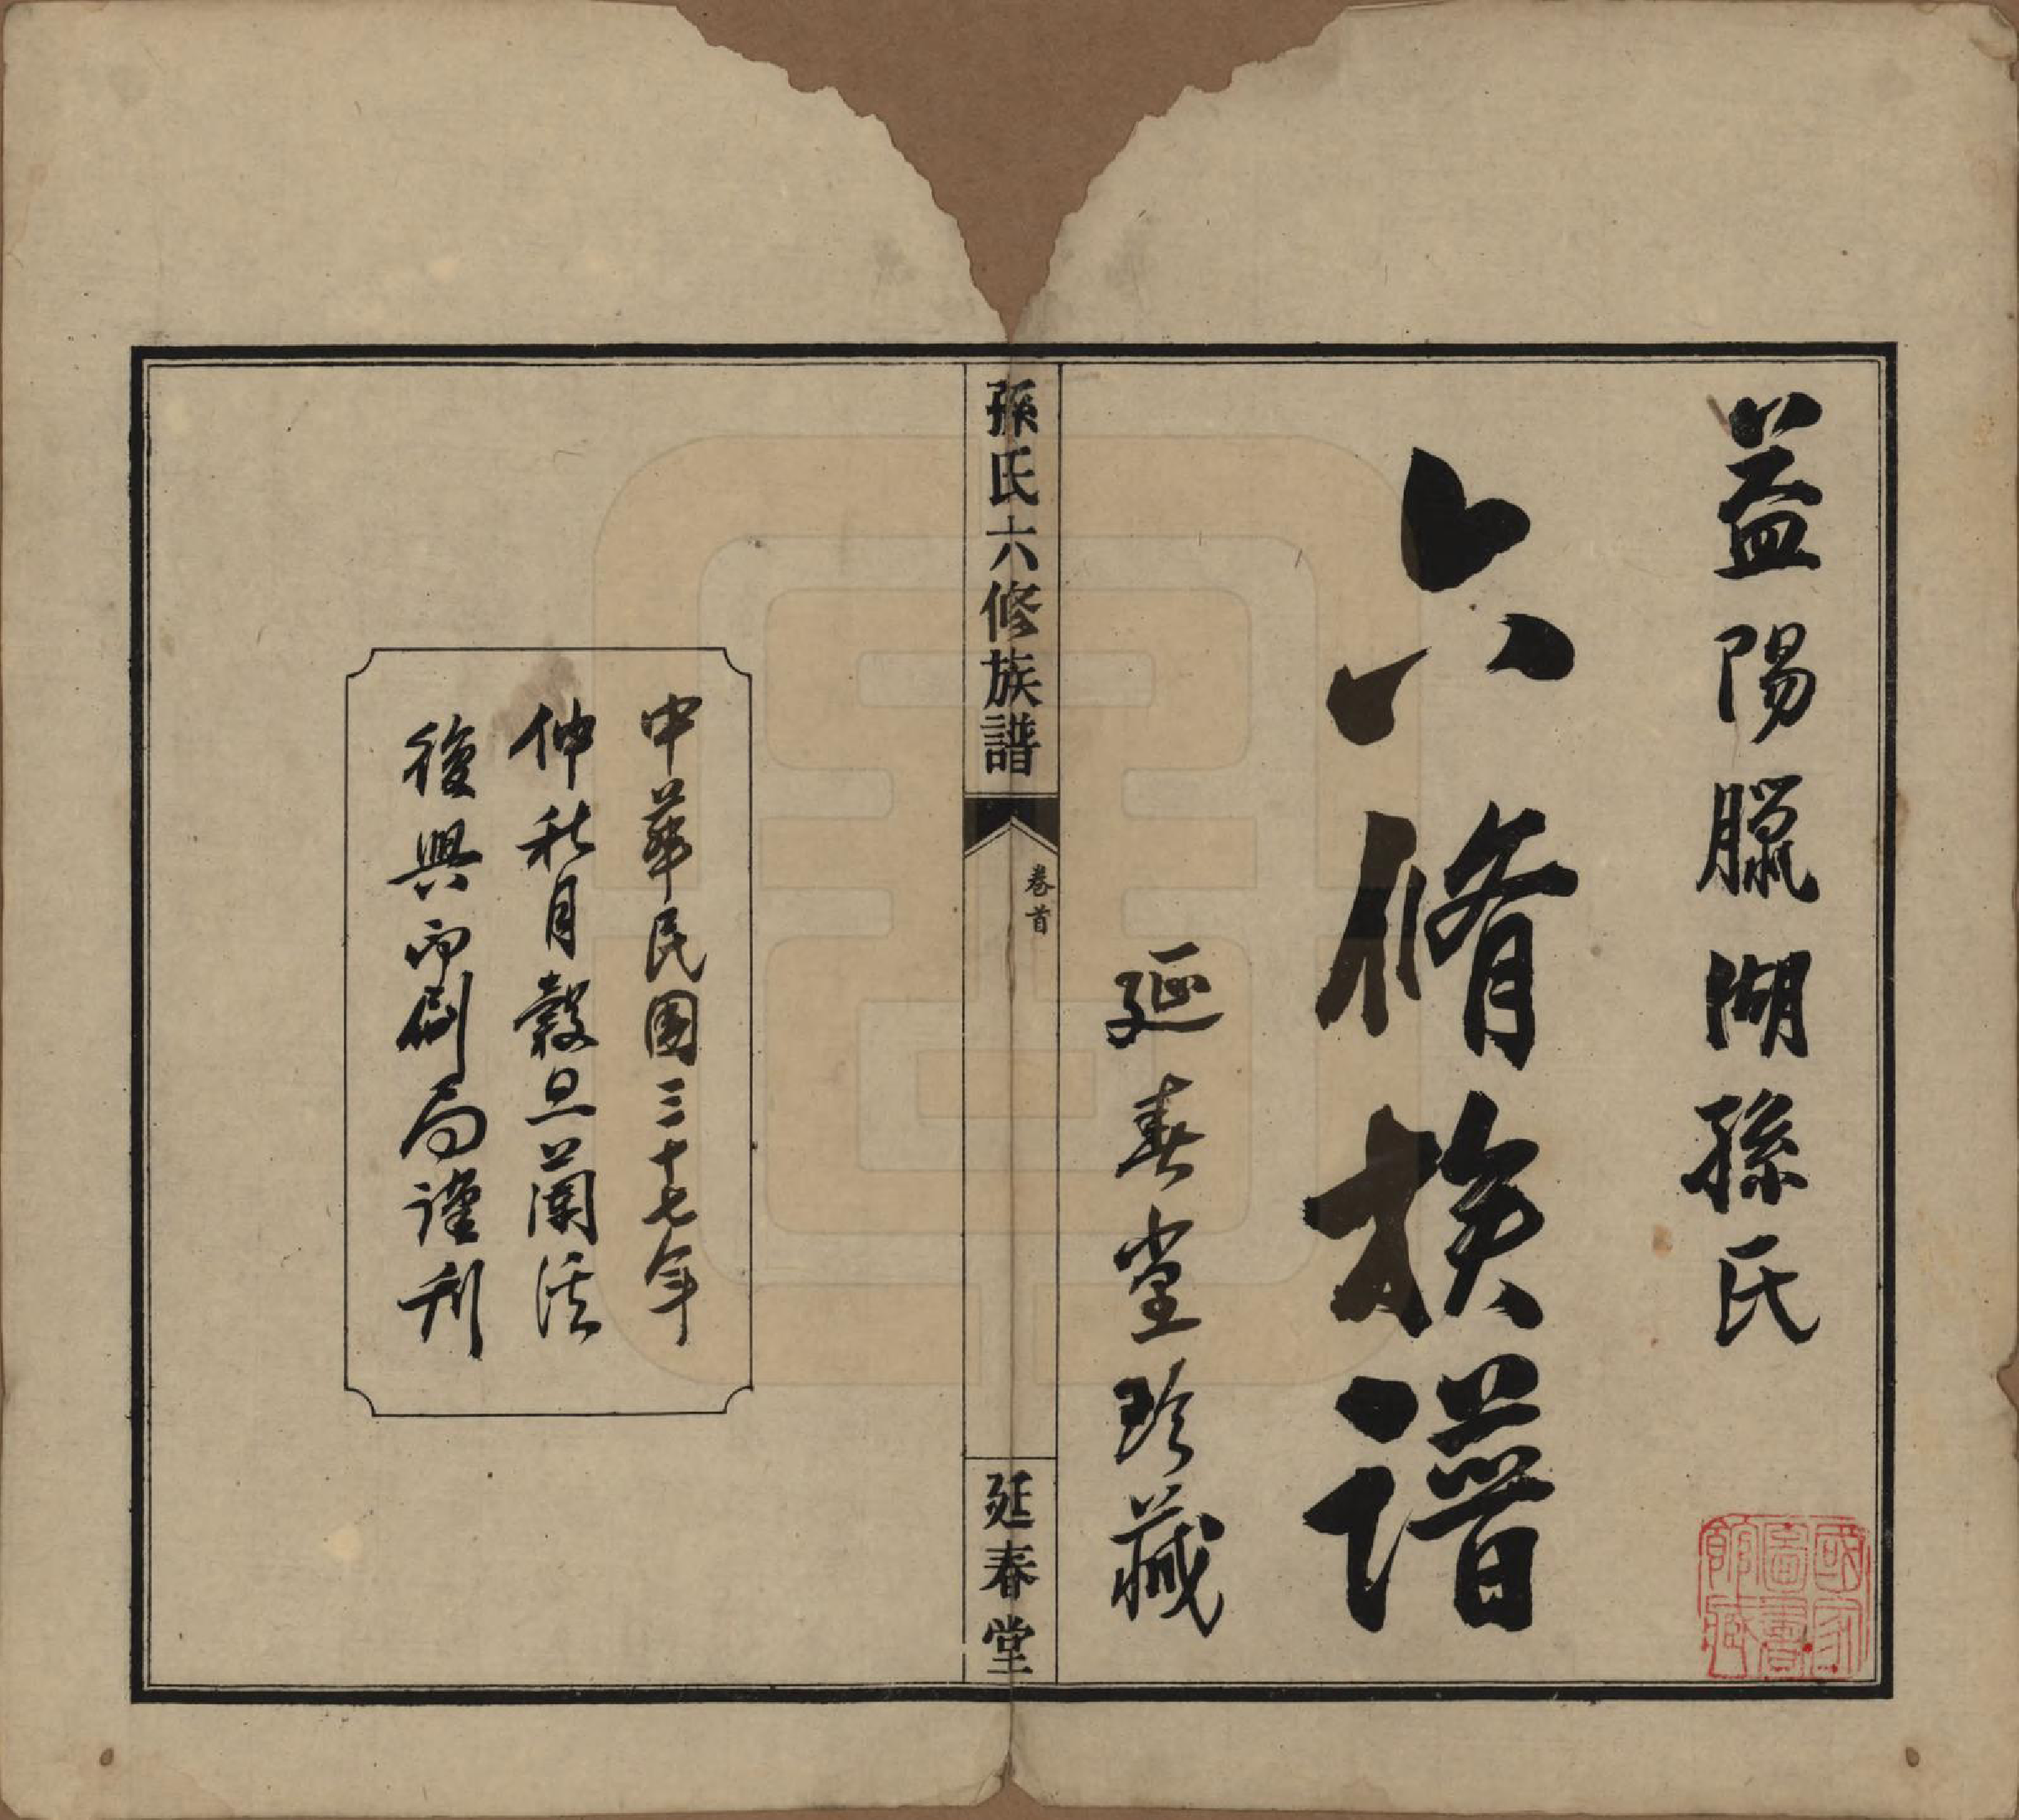 益陽臘湖孫氏
六脩族譜
延春堂珍藏
孫氏六修族譜
卷首
延春堂
中華民國三十七年
仲秋月穀旦蘭溪
復興印刷局謹刊
國家圖書館藏